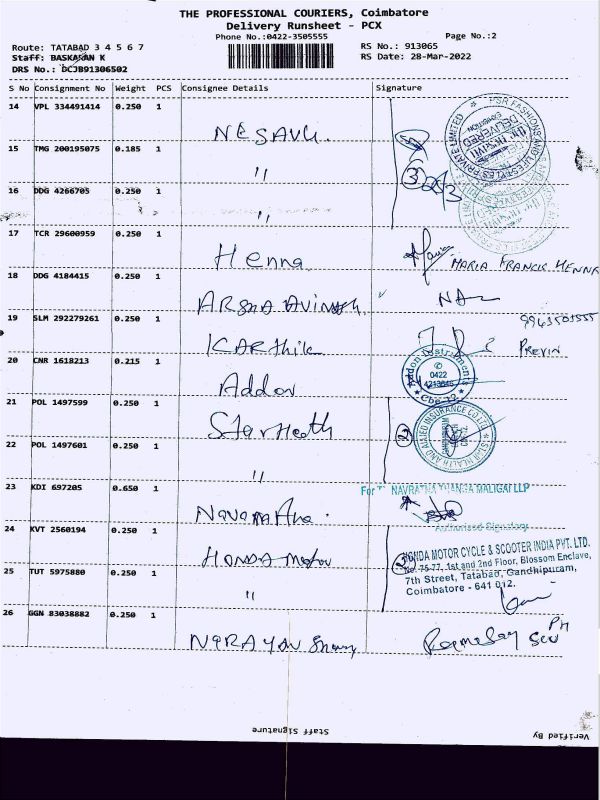 THE PROFESSIONAL COURIERS, Coimbatore
Delivery Runsheet - PCX
Phone No.:0422-3505555
Page No.:2
Route: TATABAD 3 4 5 6 7
RS No.: 913065
Staff: BASKARAN K
RS Date: 28-Mar-2022
DRS No.: DCJB91306502
S No Consignment No Weight PCS Consignee Details Signature
14 VPL 334491414 0.250 1
NESAVU.
PSR FASHIONS AND LIFESTYLES PRIVATE LIMITED
DELIVERED
15 TMG 200195075 0.185 1
"
16 DDG 4266705 0.250 1
"
3
17 TCR 29600959 0.250 1
Henna
MARIA FRANCIS HENNA
18 DDG 4184415 0.250 1
19 SLM 292279261 0.250 1
KARthik
9943501555
PREVIN
20 CNR 1618213 0.215 1
Addon
Addon Instruments
0422
Cbe-12
21 POL 1497599 0.250 1
Star Health
2
STAR HEALTH AND ALLIED INSURANCE CO LTD
22 POL 1497601 0.250 1
"
23 KDI 697205 0.650 1
For NAVRATHA THANGA MALIGAI LLP
Authorised Signatory
24 KVT 2560194 0.250 1
HONDA Motor
2
HONDA MOTOR CYCLE & SCOOTER INDIA PVT. LTD.
No. 75-77, 1st and 2nd Floor, Blossom Enclave,
7th Street, Tatabad, Gandhipuram,
Coimbatore - 641 012.
25 TUT 5975880 0.250 1
"
26 GGN 83038882 0.250 1
NARAYAN
PH
Staff Signature
Verified By